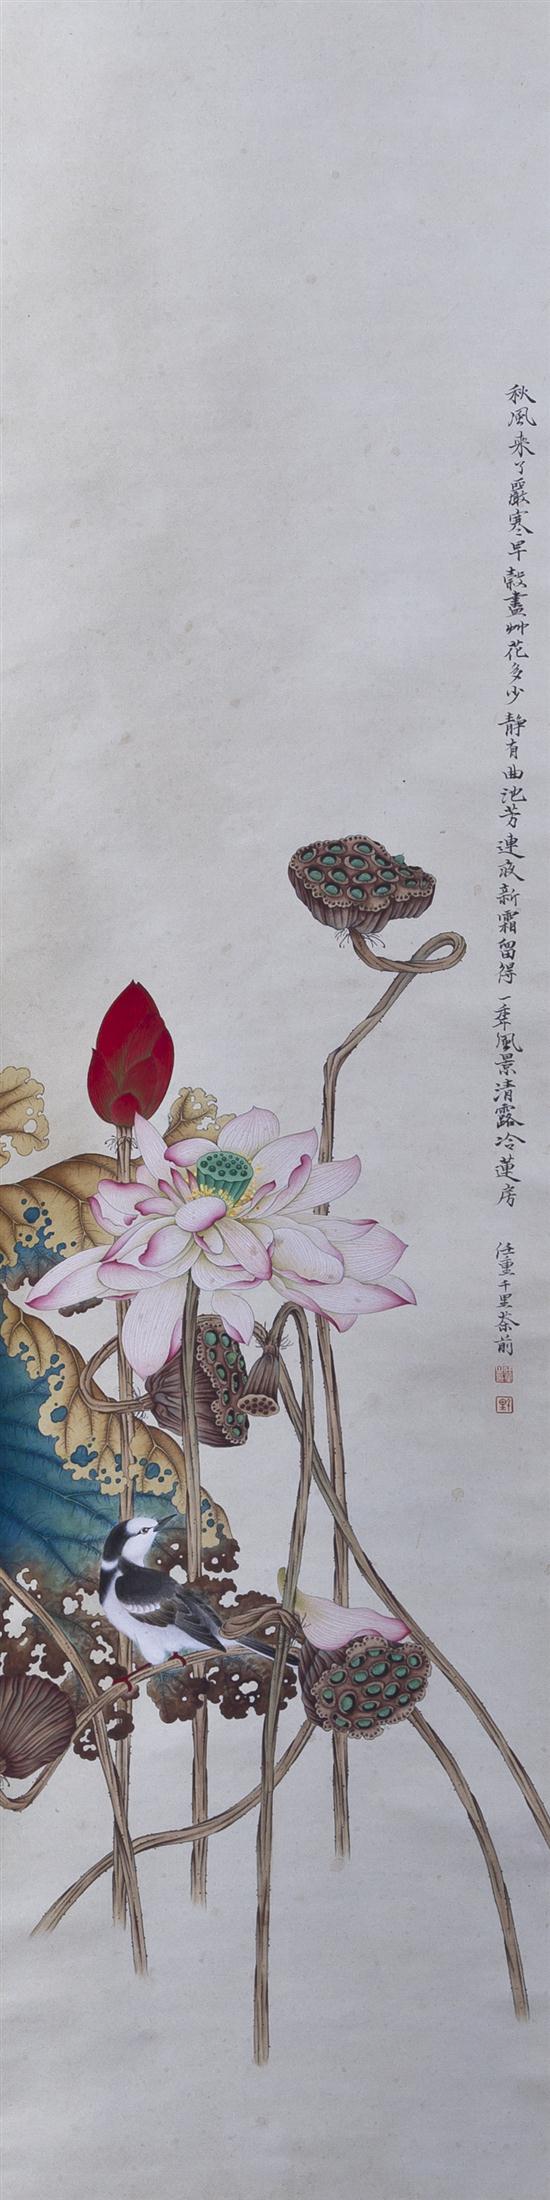 秋風來了嚴寒早穀盡艸花多少靜有曲池芳連夜新霜留得一季風景清露冷蓮房 任重千里茶前